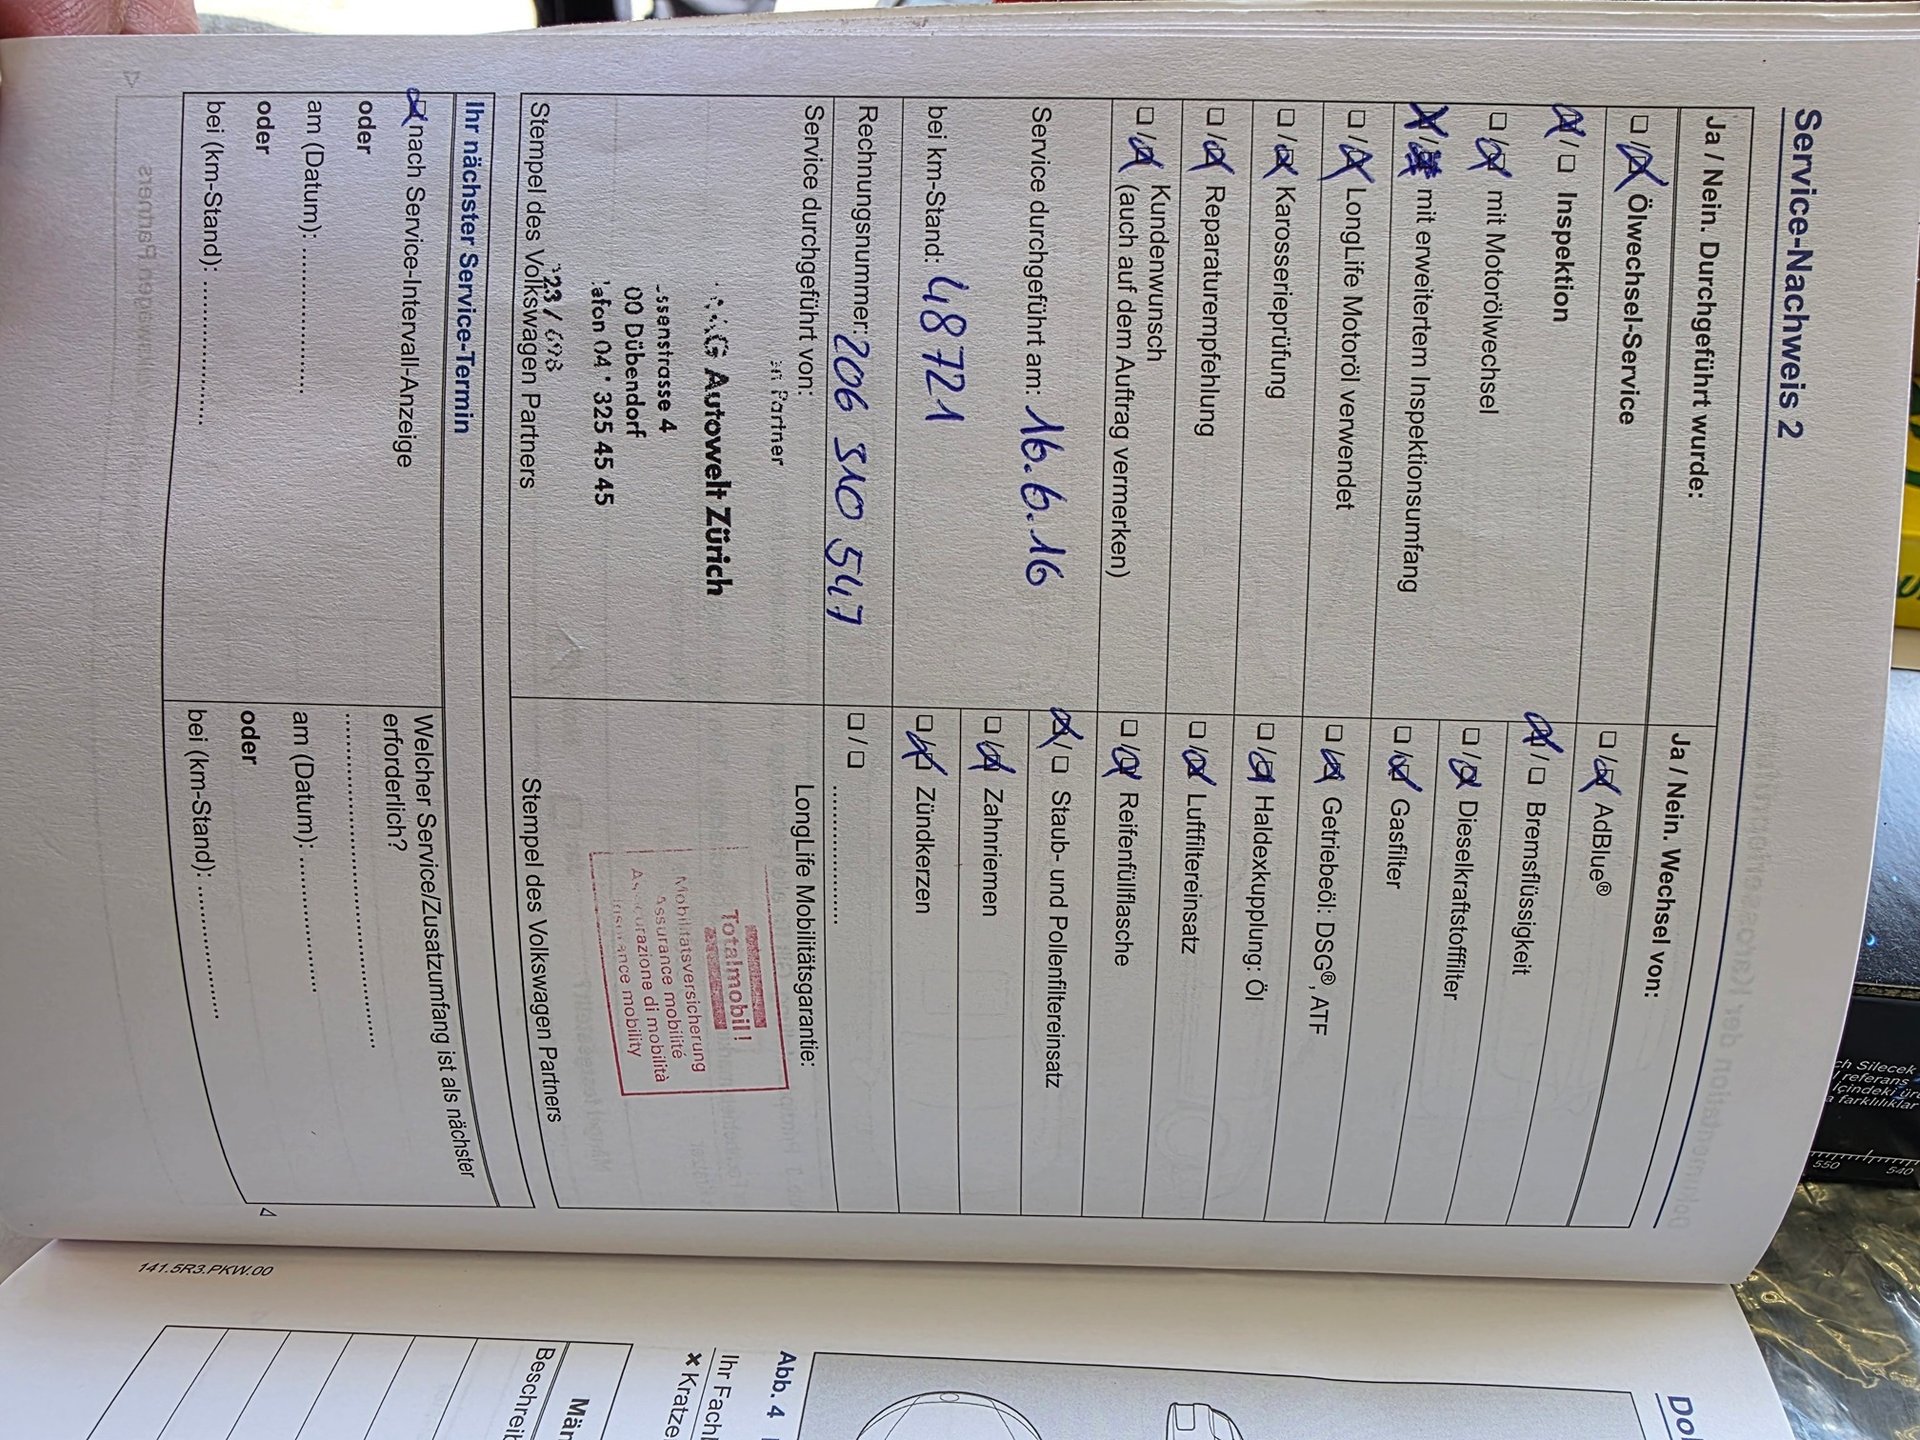 Service-Nachweis 2
Ja / Nein. Durchgeführt wurde:
☐/☒ Ölwechsel-Service
☒/☐ Inspektion
☐/☒ mit Motorölwechsel
☒/ mit erweitertem Inspektionsumfang
☐/☒ LongLife Motoröl verwendet
☐/☒ Karosserieprüfung
☐/☒ Reparaturempfehlung
☐/☒ Kundenwunsch
(auch auf dem Auftrag vermerken)
Service durchgeführt am: 16.6.16
bei km-Stand: 48721
Rechnungsnummer: 206 310 547
Service durchgeführt von:
Partner
Autowelt Zürich
4
00 Dübendorf
325 45 45
Stempel des Volkswagen Partners
Ja / Nein. Wechsel von:
☐/☒ AdBlue®
☒/☐ Bremsflüssigkeit
☐/☒ Dieselkraftstofffilter
☐/☒ Gasfilter
☐/☒ Getriebeöl: DSG®, ATF
☐/☒ Haldexkupplung: Öl
☐/☒ Luftfiltereinsatz
☐/☒ Reifenfüllflasche
☒/☐ Staub- und Pollenfiltereinsatz
☐/☒ Zahnriemen
☐/☒ Zündkerzen
☐/☐ ....................
LongLife Mobilitätsgarantie:
Totalmobil!
Mobilitätsversicherung
Assurance mobilité
Assicurazione di mobilità
Insurance mobility
Stempel des Volkswagen Partners
Ihr nächster Service-Termin
☒ nach Service-Intervall-Anzeige
oder
am (Datum): ....................
oder
bei (km-Stand): ....................
Welcher Service/Zusatzumfang ist als nächster
erforderlich?
....................
am (Datum): ....................
oder
bei (km-Stand): ....................
141.5R3.PKW.00
Abb. 4
Ihr Fach
✗ Kratze
Män
Beschreib
ch Silecek
referans
İçindeki ürü
farklılıklar
550 540